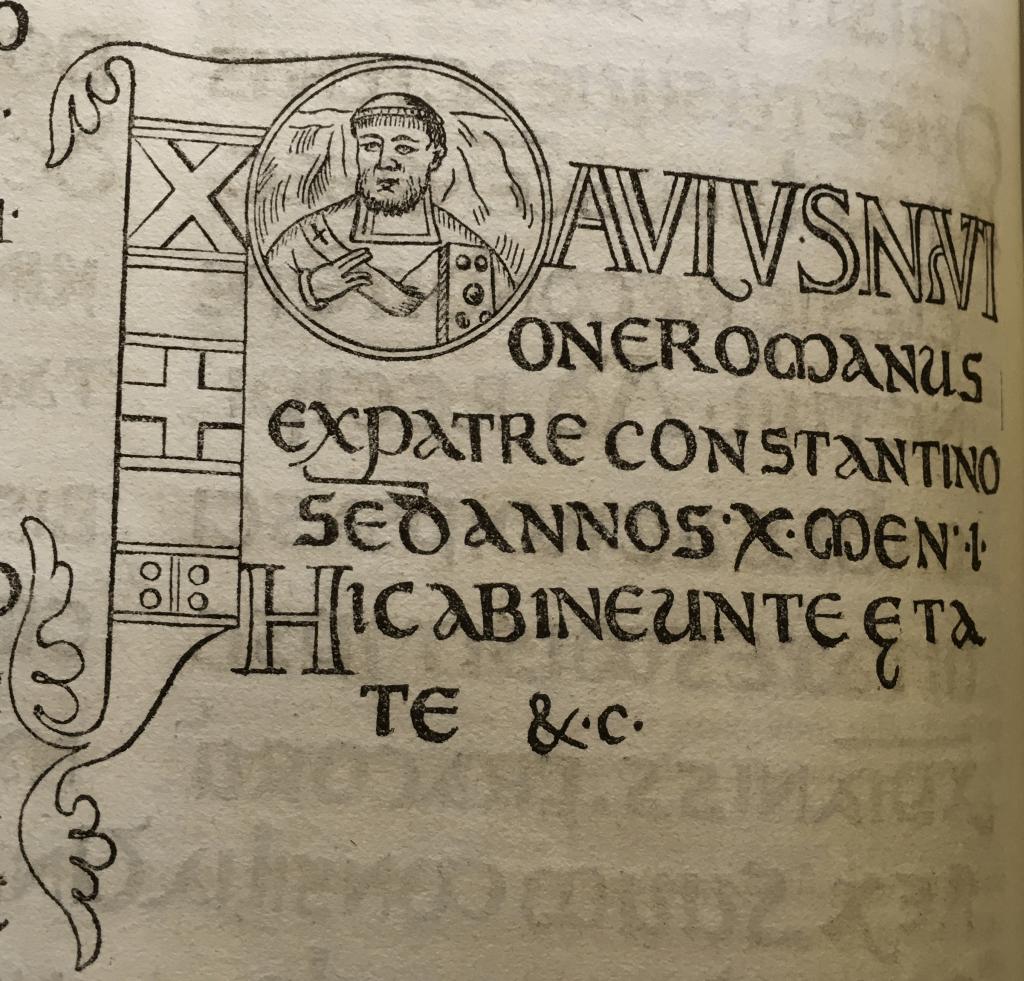 PAVLVSNATI
ONEROMANUS
EXPATRE CONSTANTINO
SEDANNOS·X·MEN·I·
HICABINEUNTE ĘTA
TE &·C·